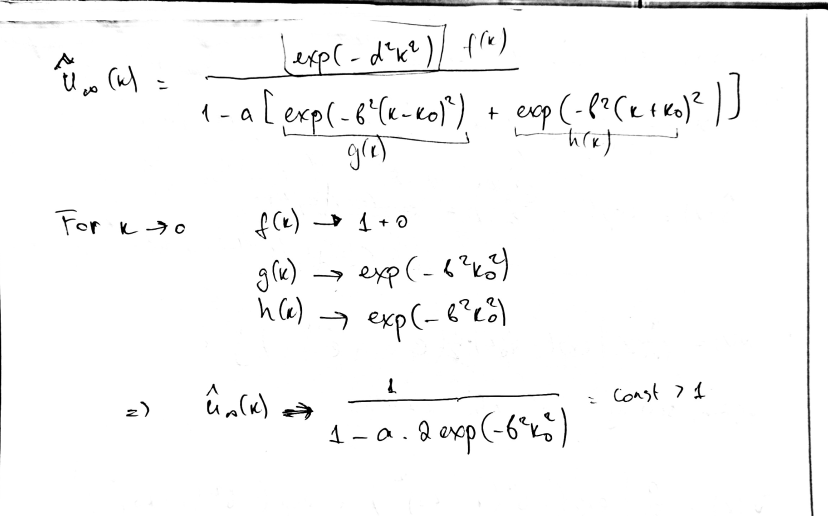 û∞(k) = [exp(-d²k²)] f(k) / 1 - a [exp(-b²(k-k₀)²) + exp(-b²(k+k₀)²)]
g(k) h(k)
For k → 0 f(k) → 1 + 0
g(k) → exp(-b²k₀²)
h(k) → exp(-b²k₀²)
=) û∞(k) → 1 / 1 - a . 2 exp(-b²k₀²) = const > 1